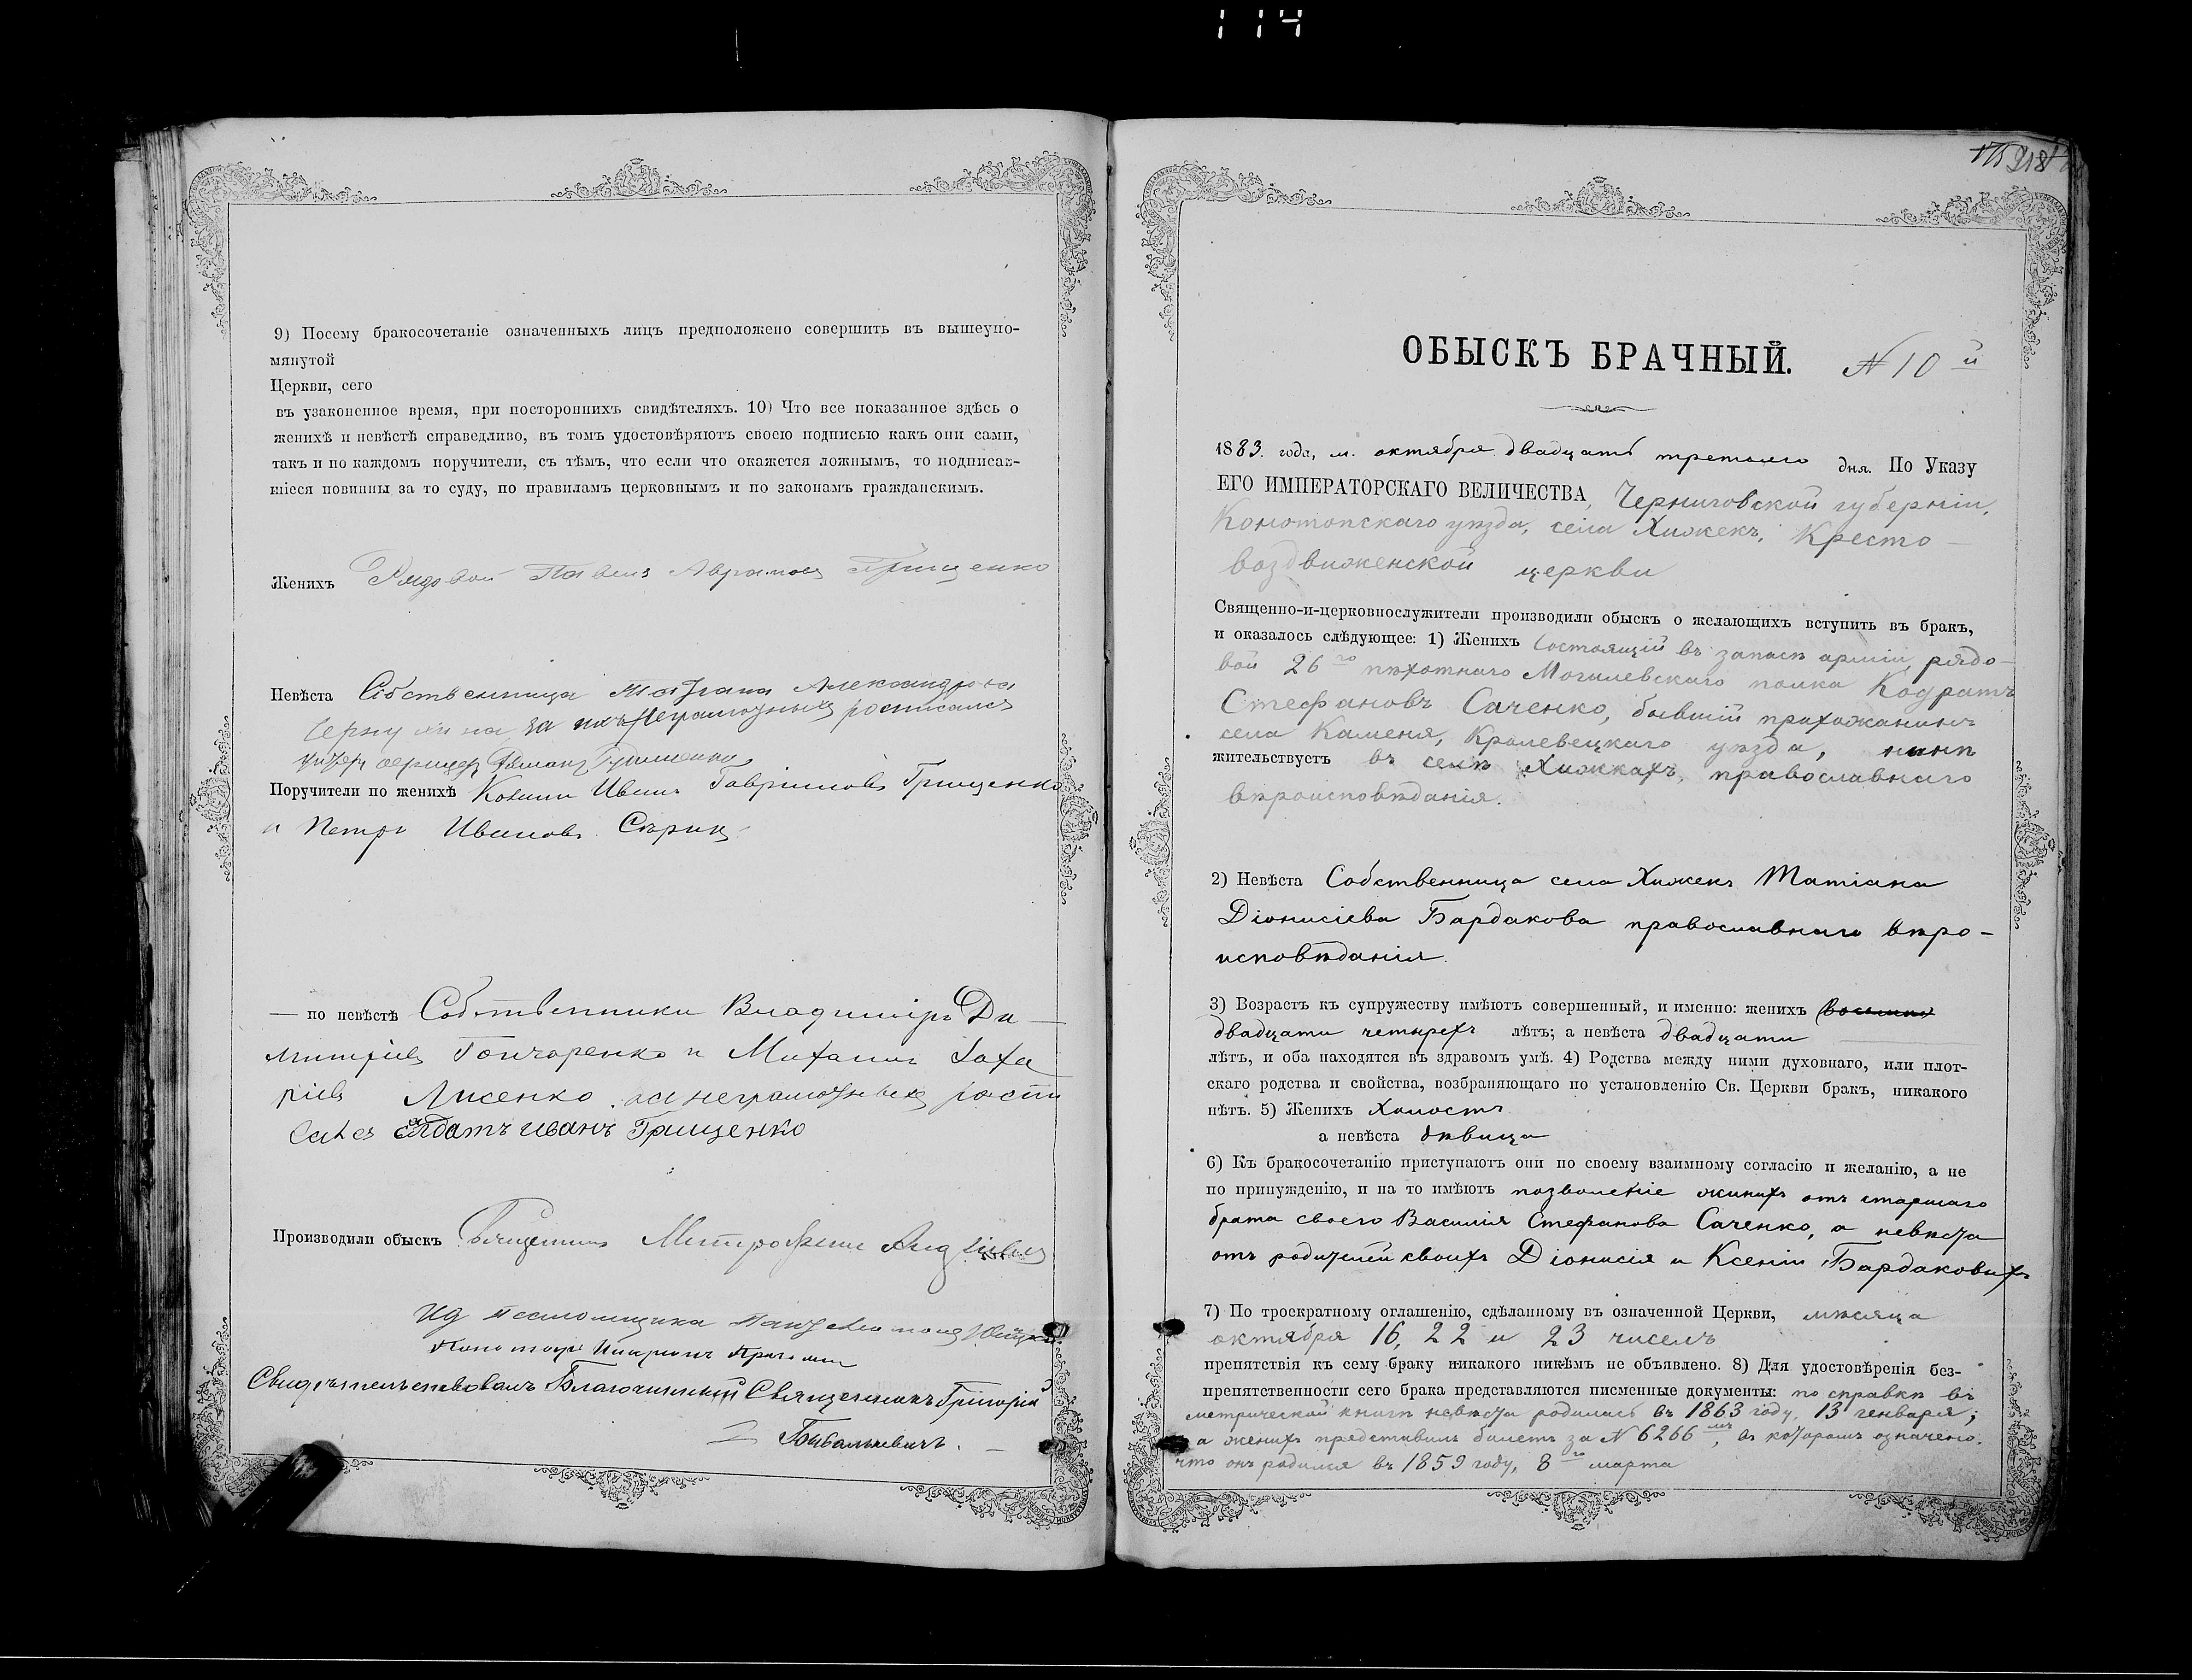 114
9) Посему бракосочетаніе означенныхъ лицъ предположено совершить въ вышеупо-
мянутой
Церкви, сего
въ узаконенное время, при постороннихъ свидѣтеляхъ. 10) Что все показанное здѣсь о
женихѣ и невѣстѣ справедливо, въ томъ удостовѣряютъ своею подписью какъ они сами,
такъ и по каждомъ поручители, съ тѣмъ, что если что окажется ложнымъ, то подписав-
шіеся повинны за то суду, по правиламъ церковнымъ и по законамъ гражданскимъ.
Женихъ Рядовой Павелъ Аврамовъ Грищенко
Невѣста Собственница Татіана Александрова
за ихъ неграмотныхъ росписался
унтеръ офицеръ Романъ
Поручители по женихѣ Иванъ Гавриловъ Грищенко
и Петръ Ивановъ Сѣрикъ
— по невѣстѣ Собственники Владиміръ Ди-
митріевъ Гончаренко и Михаилъ Заха
ріевъ Лисенко за неграмотныхъ роспи
сался солдатъ Иванъ Грищенко
Производили обыскъ Священникъ Митрофанъ
ИД псаломщика
Пономарь
Свидѣтельствовалъ Благочинный Священникъ Григорій
175 218
ОБЫСКЪ БРАЧНЫЙ. N 10й
1883. года, м. октября двадцать третьяго дня. По Указу
ЕГО ИМПЕРАТОРСКАГО ВЕЛИЧЕСТВА, Черниговской губерніи,
Конотопскаго уѣзда, села Хижекъ, Кресто-
воздвиженской церкви
Священно-и-церковнослужители производили обыскъ о желающихъ вступить въ бракъ,
и оказалось слѣдующее: 1) Женихъ Состоящій въ запасѣ арміи, рядо-
вой 26го пѣхотнаго Могилевскаго полка Кодратъ
Стефановъ Саченко, бывшій прихожанинъ
села Каменя, Кролевецкаго уѣзда, нынѣ
жительствуетъ въ селѣ Хижкахъ, православнаго
вѣроисповѣданія.
2) Невѣста Собственница села Хижекъ Татіана
Діонисіева Бардакова православнаго вѣро-
исповѣданія.
3) Возрастъ къ супружеству имѣютъ совершенный, и именно: женихъ
двадцати четырехъ лѣтъ; а невѣста двадцати
лѣтъ, и оба находятся въ здравомъ умѣ. 4) Родства между ними духовнаго, или плот-
скаго родства и свойства, возбраняющаго по установленію Св. Церкви бракъ, никакого
нѣтъ. 5) Женихъ холостъ
а невѣста дѣвица
6) Къ бракосочетанію приступаютъ они по своему взаимному согласію и желанію, а не
по принужденію, и на то имѣютъ позволеніе женихъ отъ старшаго
брата своего Василія Стефанова Саченко, а невѣста
отъ родителей своихъ Діонисія и Ксеніи Бардаковыхъ
7) По троекратному оглашенію, сдѣланному въ означенной Церкви, мѣсяца
октября 16, 22 и 23 чиселъ
препятствія къ сему браку никакого никѣмъ не объявлено. 8) Для удостовѣренія без-
препятственности сего брака представляются писменные документы: по справкѣ въ
метрической книгѣ невѣста родилась въ 1863 году, 13 генваря;
а женихъ представилъ билетъ за N 6266мъ, въ которомъ означено,
что онъ родился въ 1859 году, 8го марта